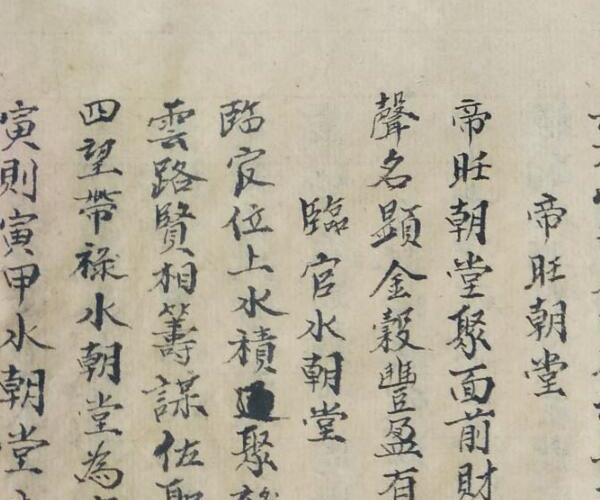 帝旺朝堂
帝旺朝堂聚面前財
聲名顕金穀豐盈有
臨官水朝堂
臨官位上水積聚
雲路賢相籌謀佐聖
四望帶禄水朝堂為
寅則寅甲水朝堂